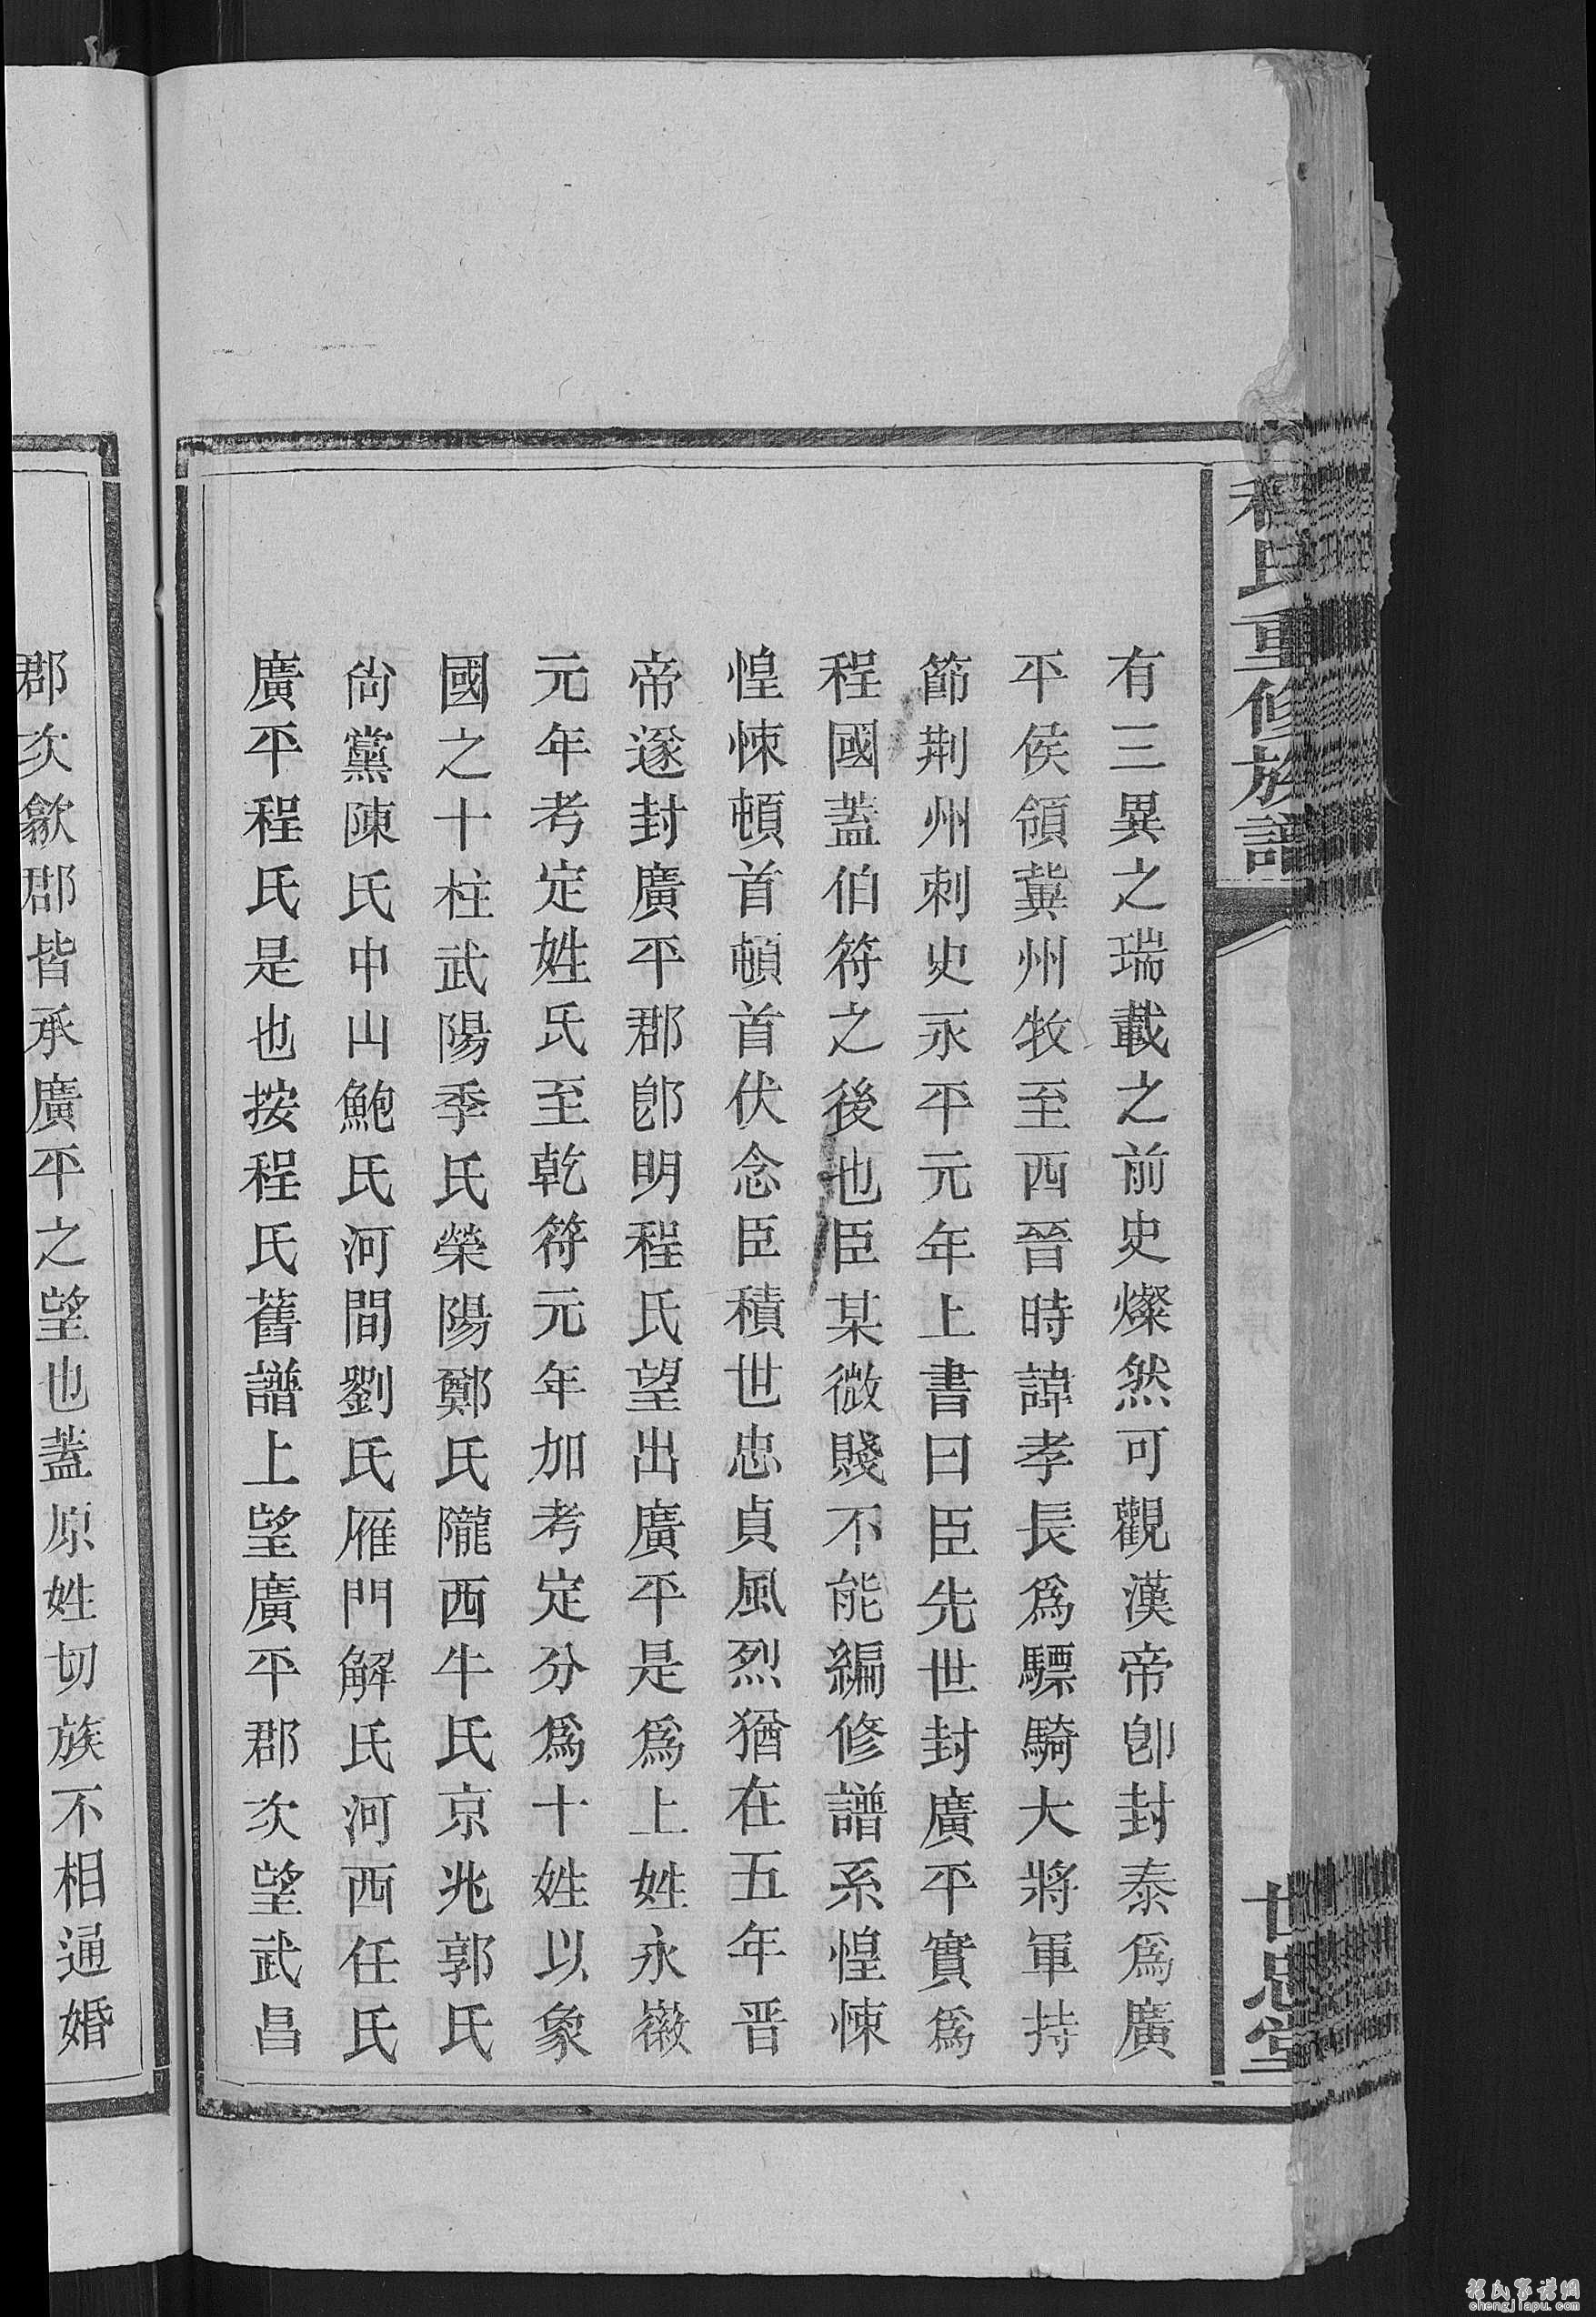 程氏重修族譜
世忠堂
有三異之瑞載之前史燦然可觀漢帝卽封泰爲廣
平侯領冀州牧至西晉時諱孝長爲驃騎大將軍持
節荆州刺史永平元年上書曰臣先世封廣平實爲
程國蓋伯符之後也臣某微賤不能編修譜系惶悚
惶悚頓首頓首伏念臣積世忠貞風烈猶在五年晋
帝遂封廣平郡卽明程氏望出廣平是爲上姓永徽
元年考定姓氏至乾符元年加考定分爲十姓以象
國之十柱武陽季氏榮陽鄭氏隴西牛氏京兆郭氏
尙黨陳氏中山鮑氏河間劉氏雁門解氏河西任氏
廣平程氏是也按程氏舊譜上望廣平郡次望武昌
郡次歙郡皆承廣平之望也蓋原姓切族不相通婚
程氏家譜網
chengjiapu.com